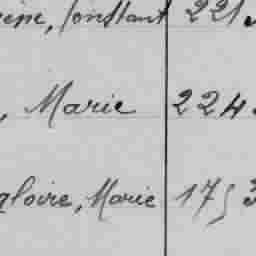 Constant 221
, Marie 224
gloire, Marie 175